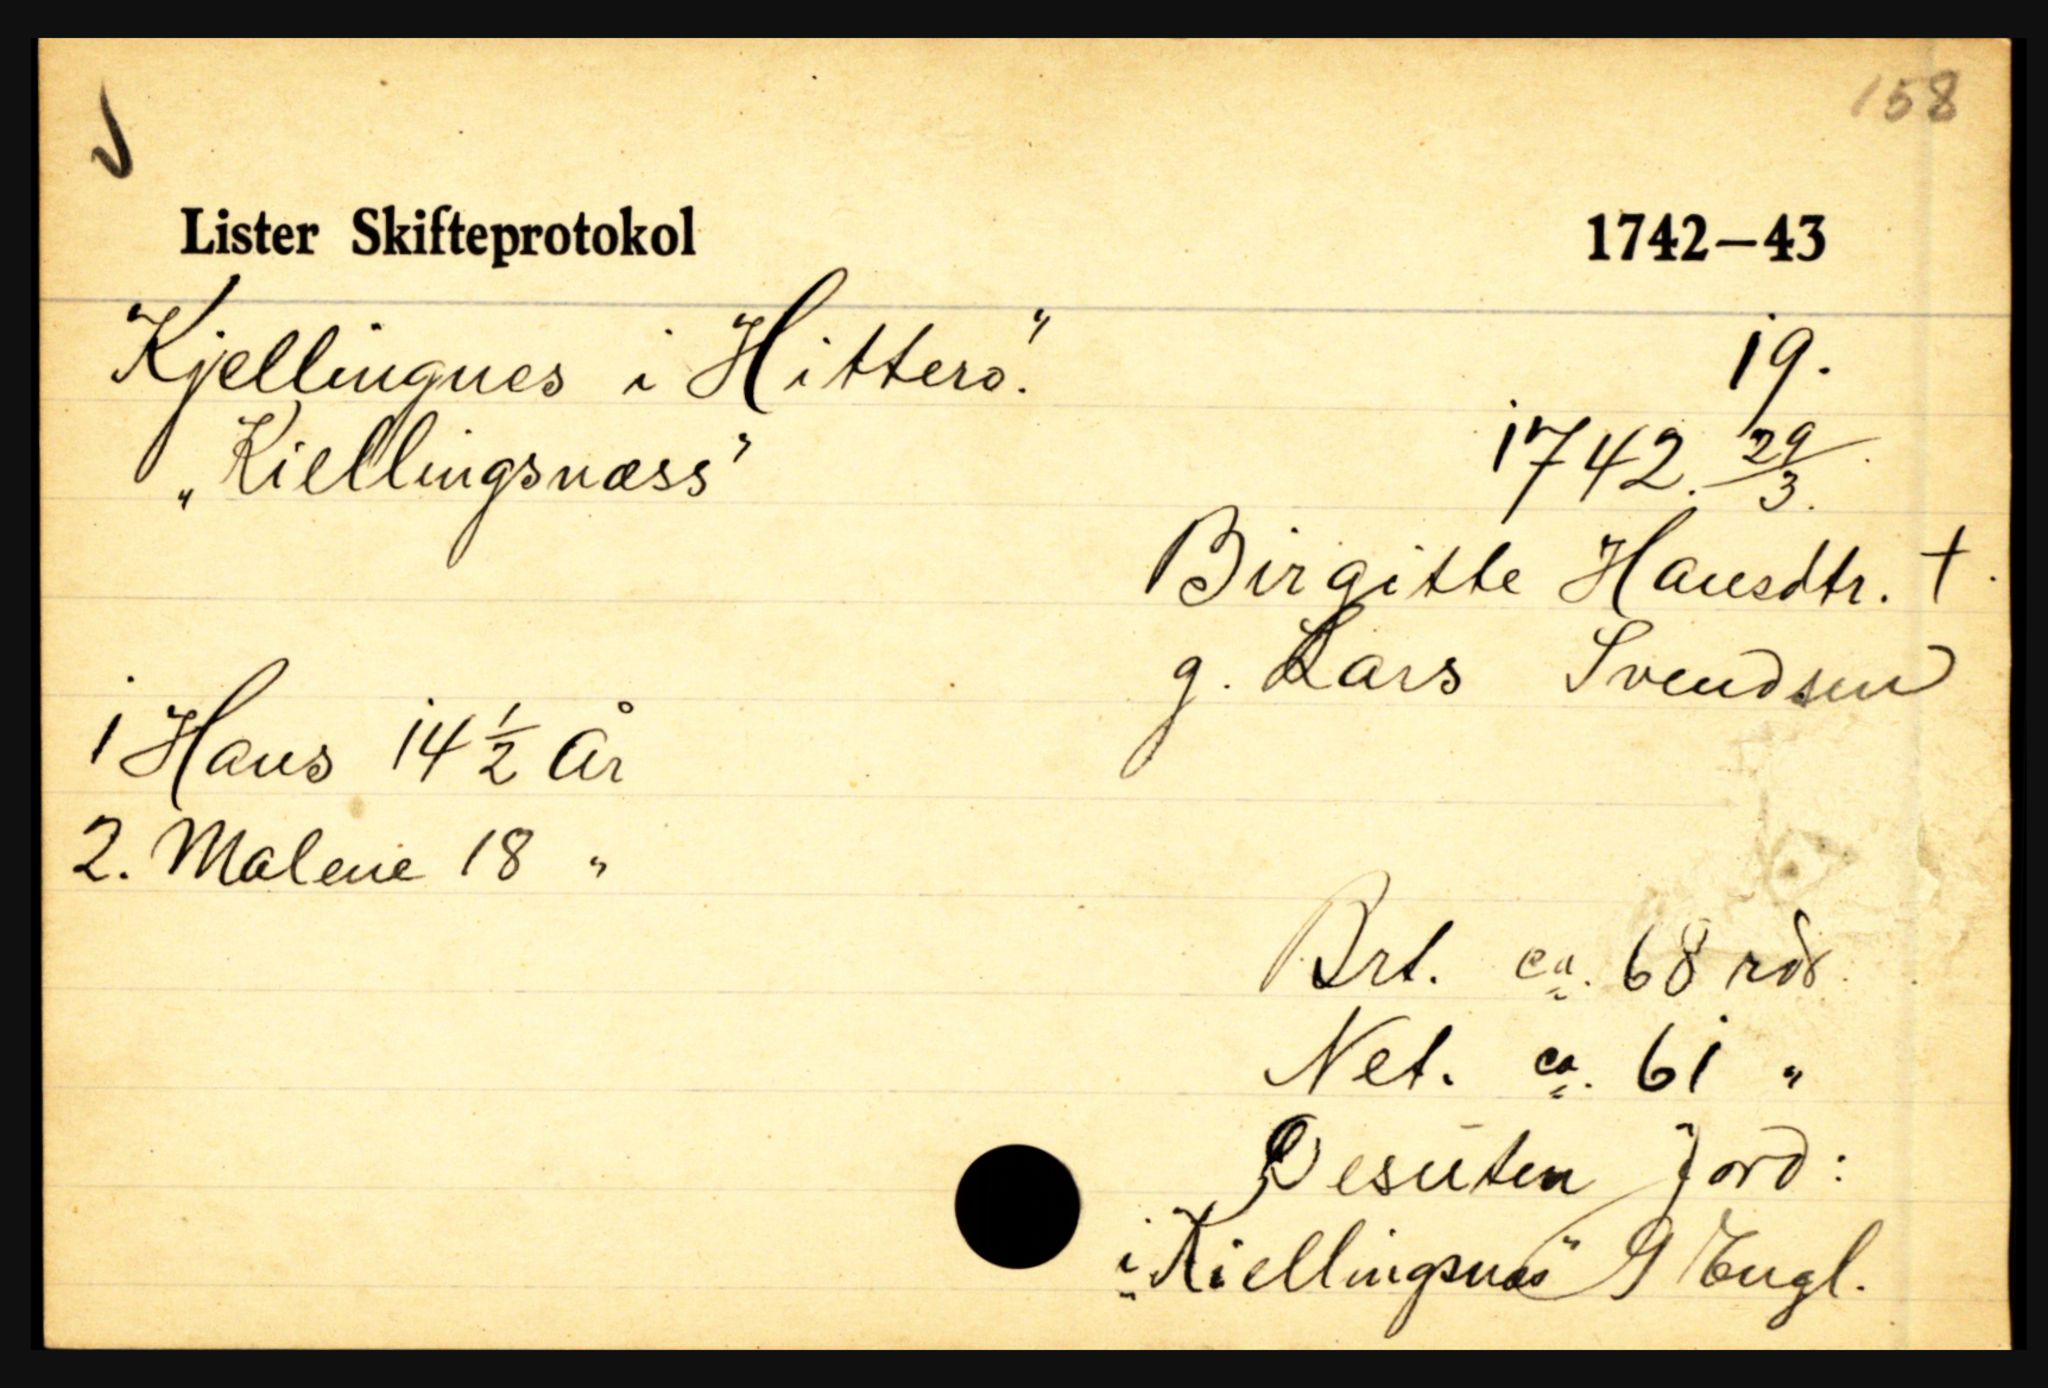 158
Lister Skifteprotokol 1742—43
Kjellingnes i Hitterö." 19.
„Kiellingsnæss" 1742. 29/3.
Birgitte Hansdtr. †.
g. Lars Svendsen
1 Hans 14 1/2 År
2. Malene 18 "
Brt. ca. 68 rdr.
Net. ca. 61 "
Desuten Jord:
i „Kiellingsnæs" 9 Engl.